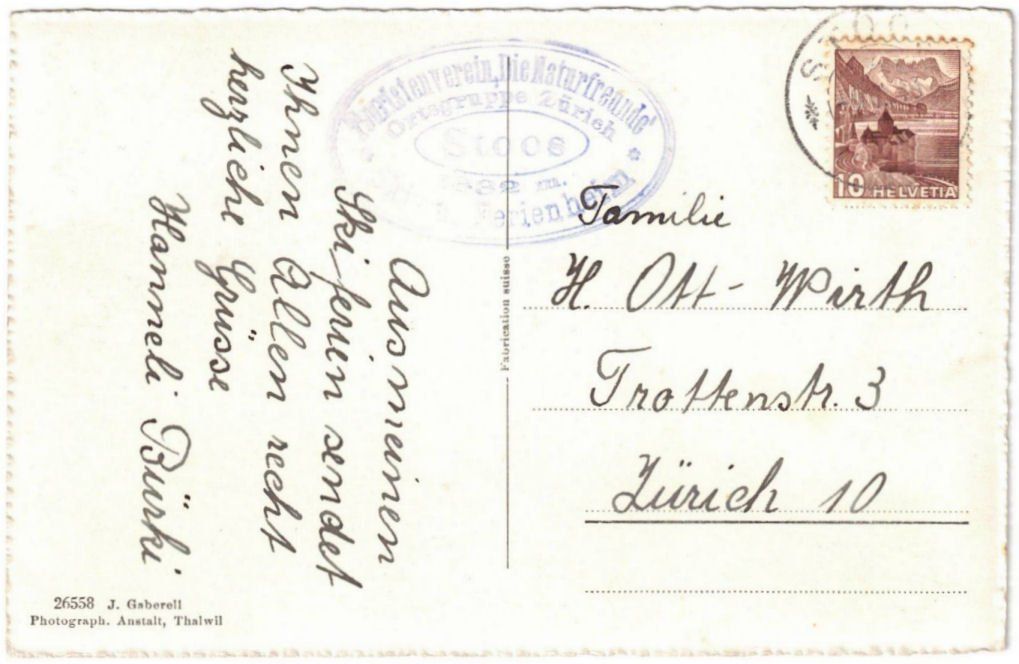 Aus meinen
Skiferien sendet
Ihnen Allen recht
herzliche Grüsse
Hanneli Bürki
Touristenverein „Die Naturfreunde"
Ortsgruppe Zürich
Stoos
m.
Ferienheim
Fabrication suisse
10 HELVETIA
Familie
H. Ott - Wirth
Trottenstr. 3
Zürich 10
26558 J. Gaberell
Photograph. Anstalt, Thalwil